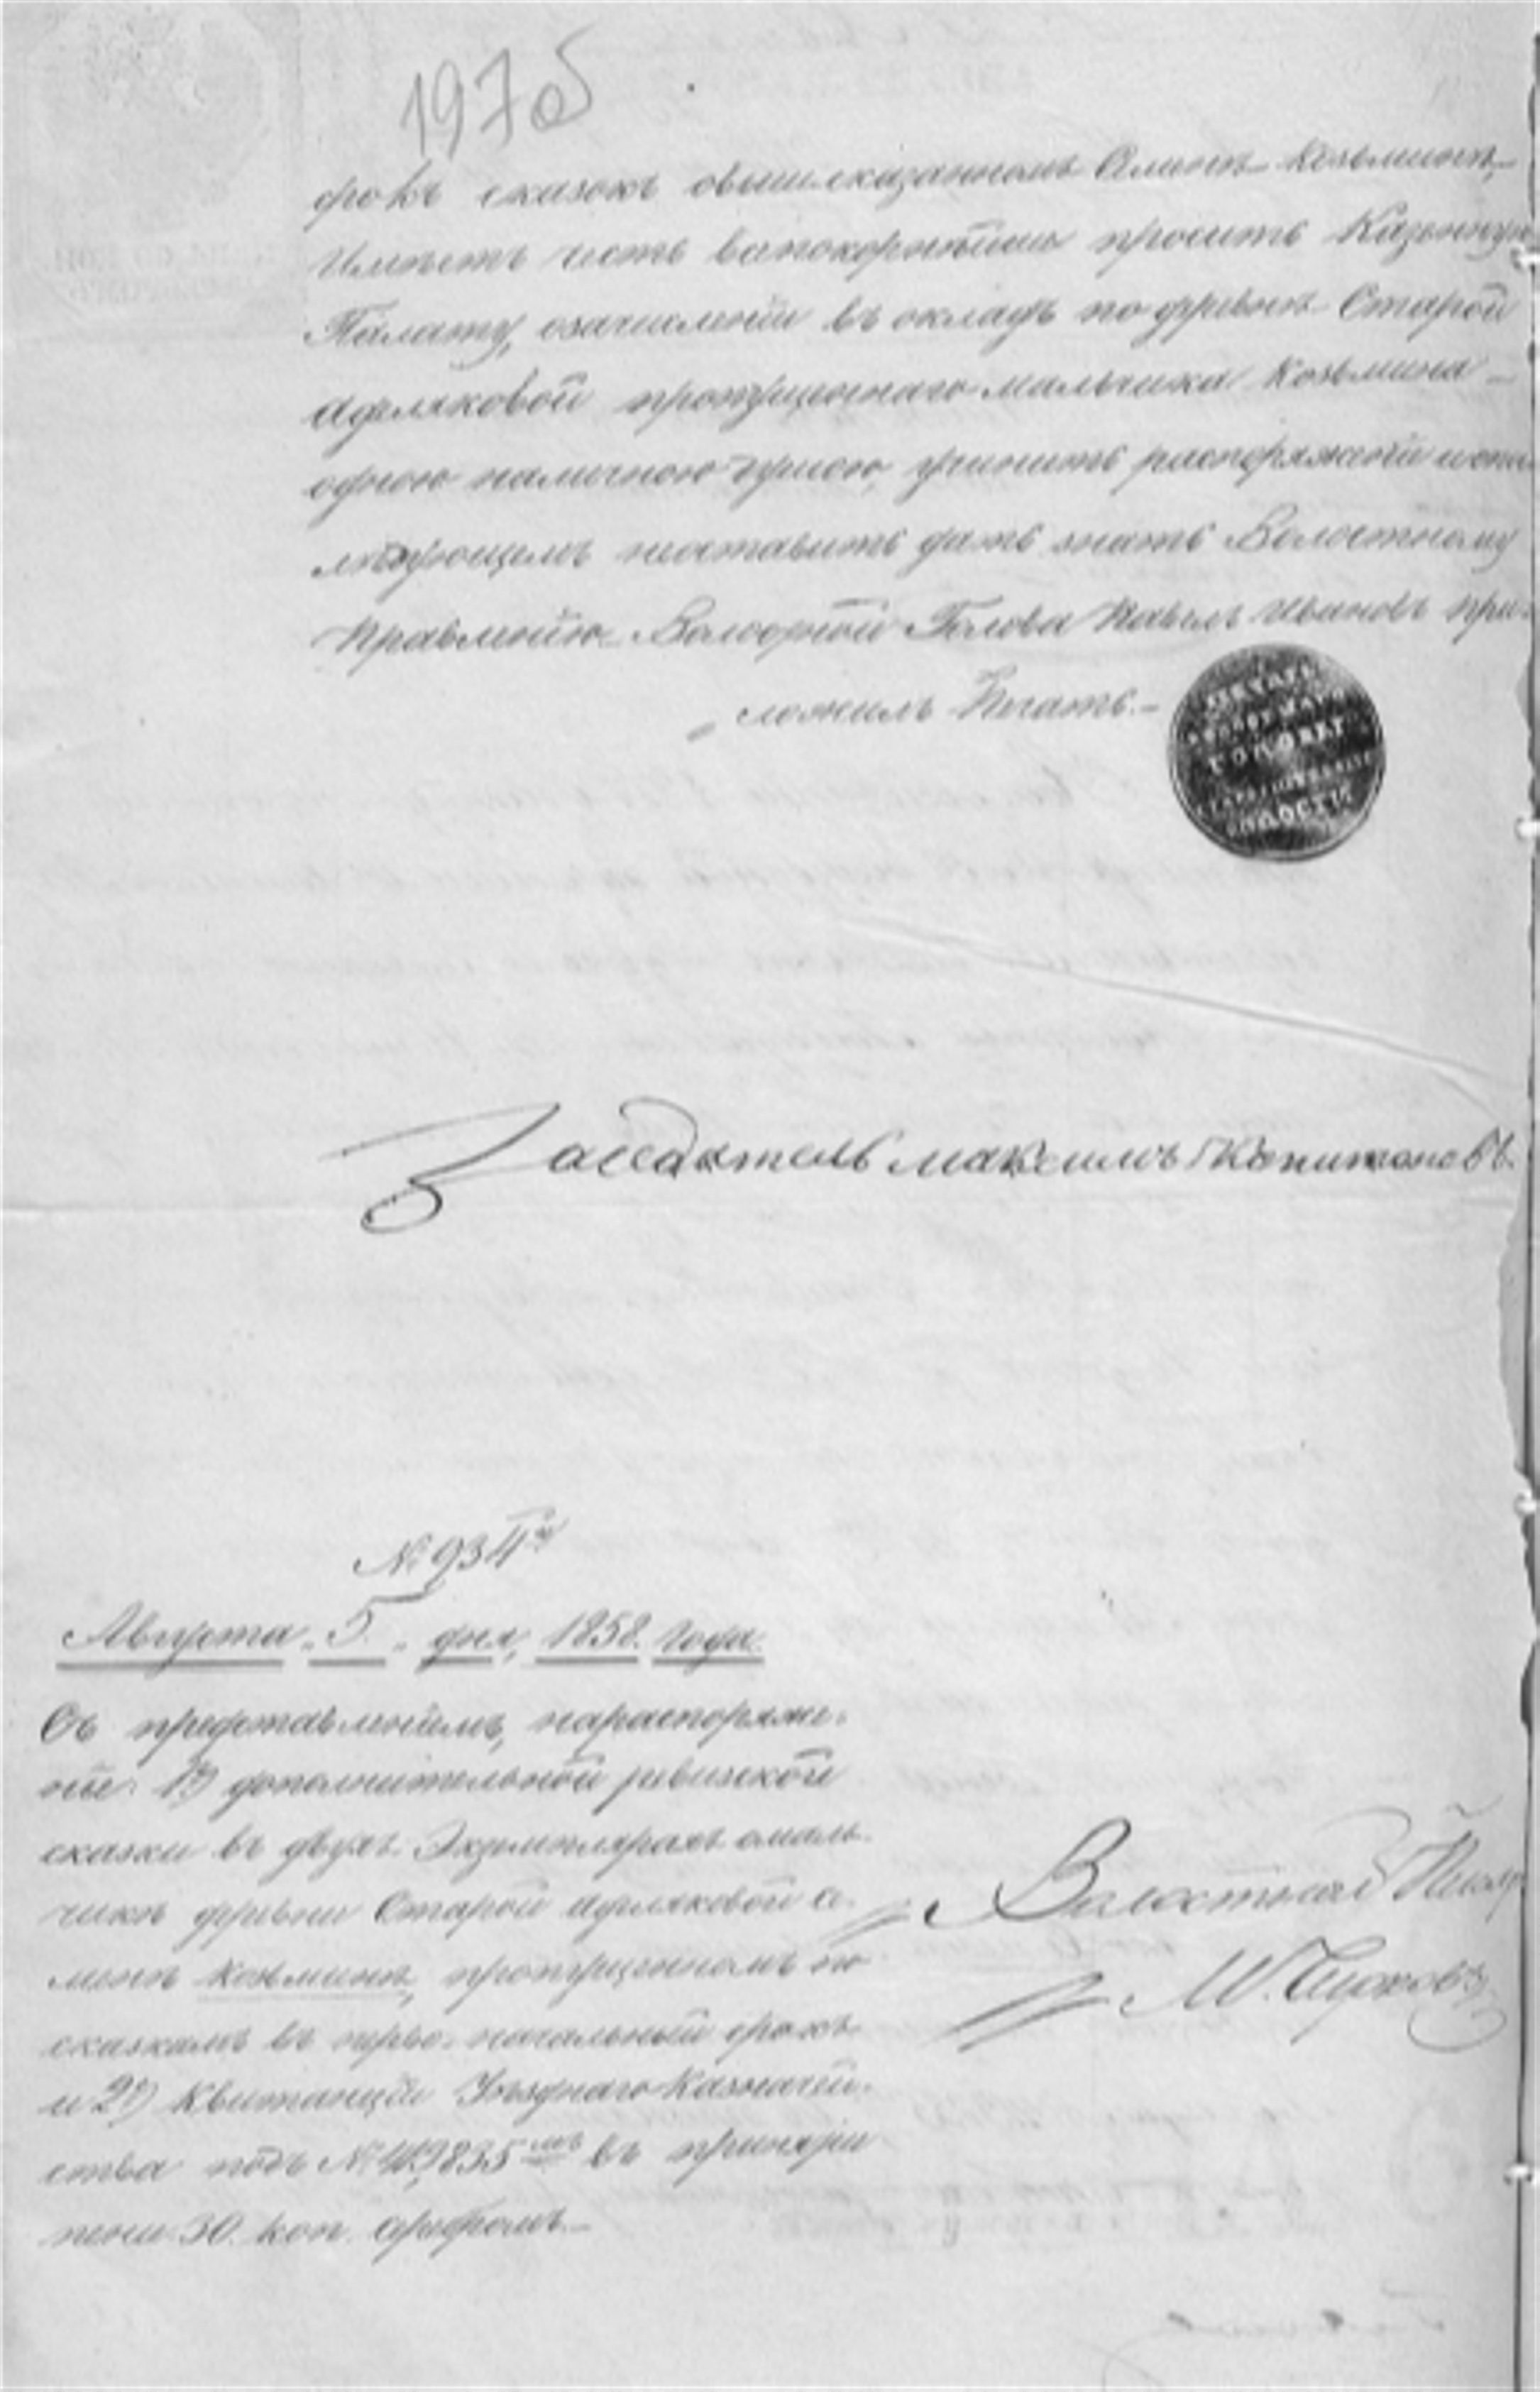 197об
рокъ сказокъ овышесказанномъ Оминѣ Козьминѣ,
Имѣетъ честь вапокорнѣйше просить Казенную
Палату, озачисленіи въ окладъ по дервнѣ Старой
Аделяковой пропущеннаго мальчика Козьмина
одною наличною душою, учинить распоряженіи ипос
лѣдующемъ неоставить дать знать Волостному
Правленію. Волосрной Голова Павелъ Ивановъ при-
ложилъ Печать.
ПЕЧАТЬ
ГОЛОВЫ
ВОЛОСТИ
Заседатель максимъ Капитоновъ
№ 934й
Августа „5„ дня, 1858. Года.
Съ представленіемъ, нараспоряже-
ніе: 1э) дополнительной ревизской
сказки въ двухъ Экземплярахъ омаль-
чикѣ дервни Старой Аделяковой О-
минѣ Козьминѣ, пропущенномъ по
сказкамъ въ перво-начальный срокъ
и 2э) Квитанціи Уѣзднаго Казначей-
ства подъ № 419835мъ въ принятіи
пени 30. коп. серебромъ.
Валостной Писарь
М. Чурковъ